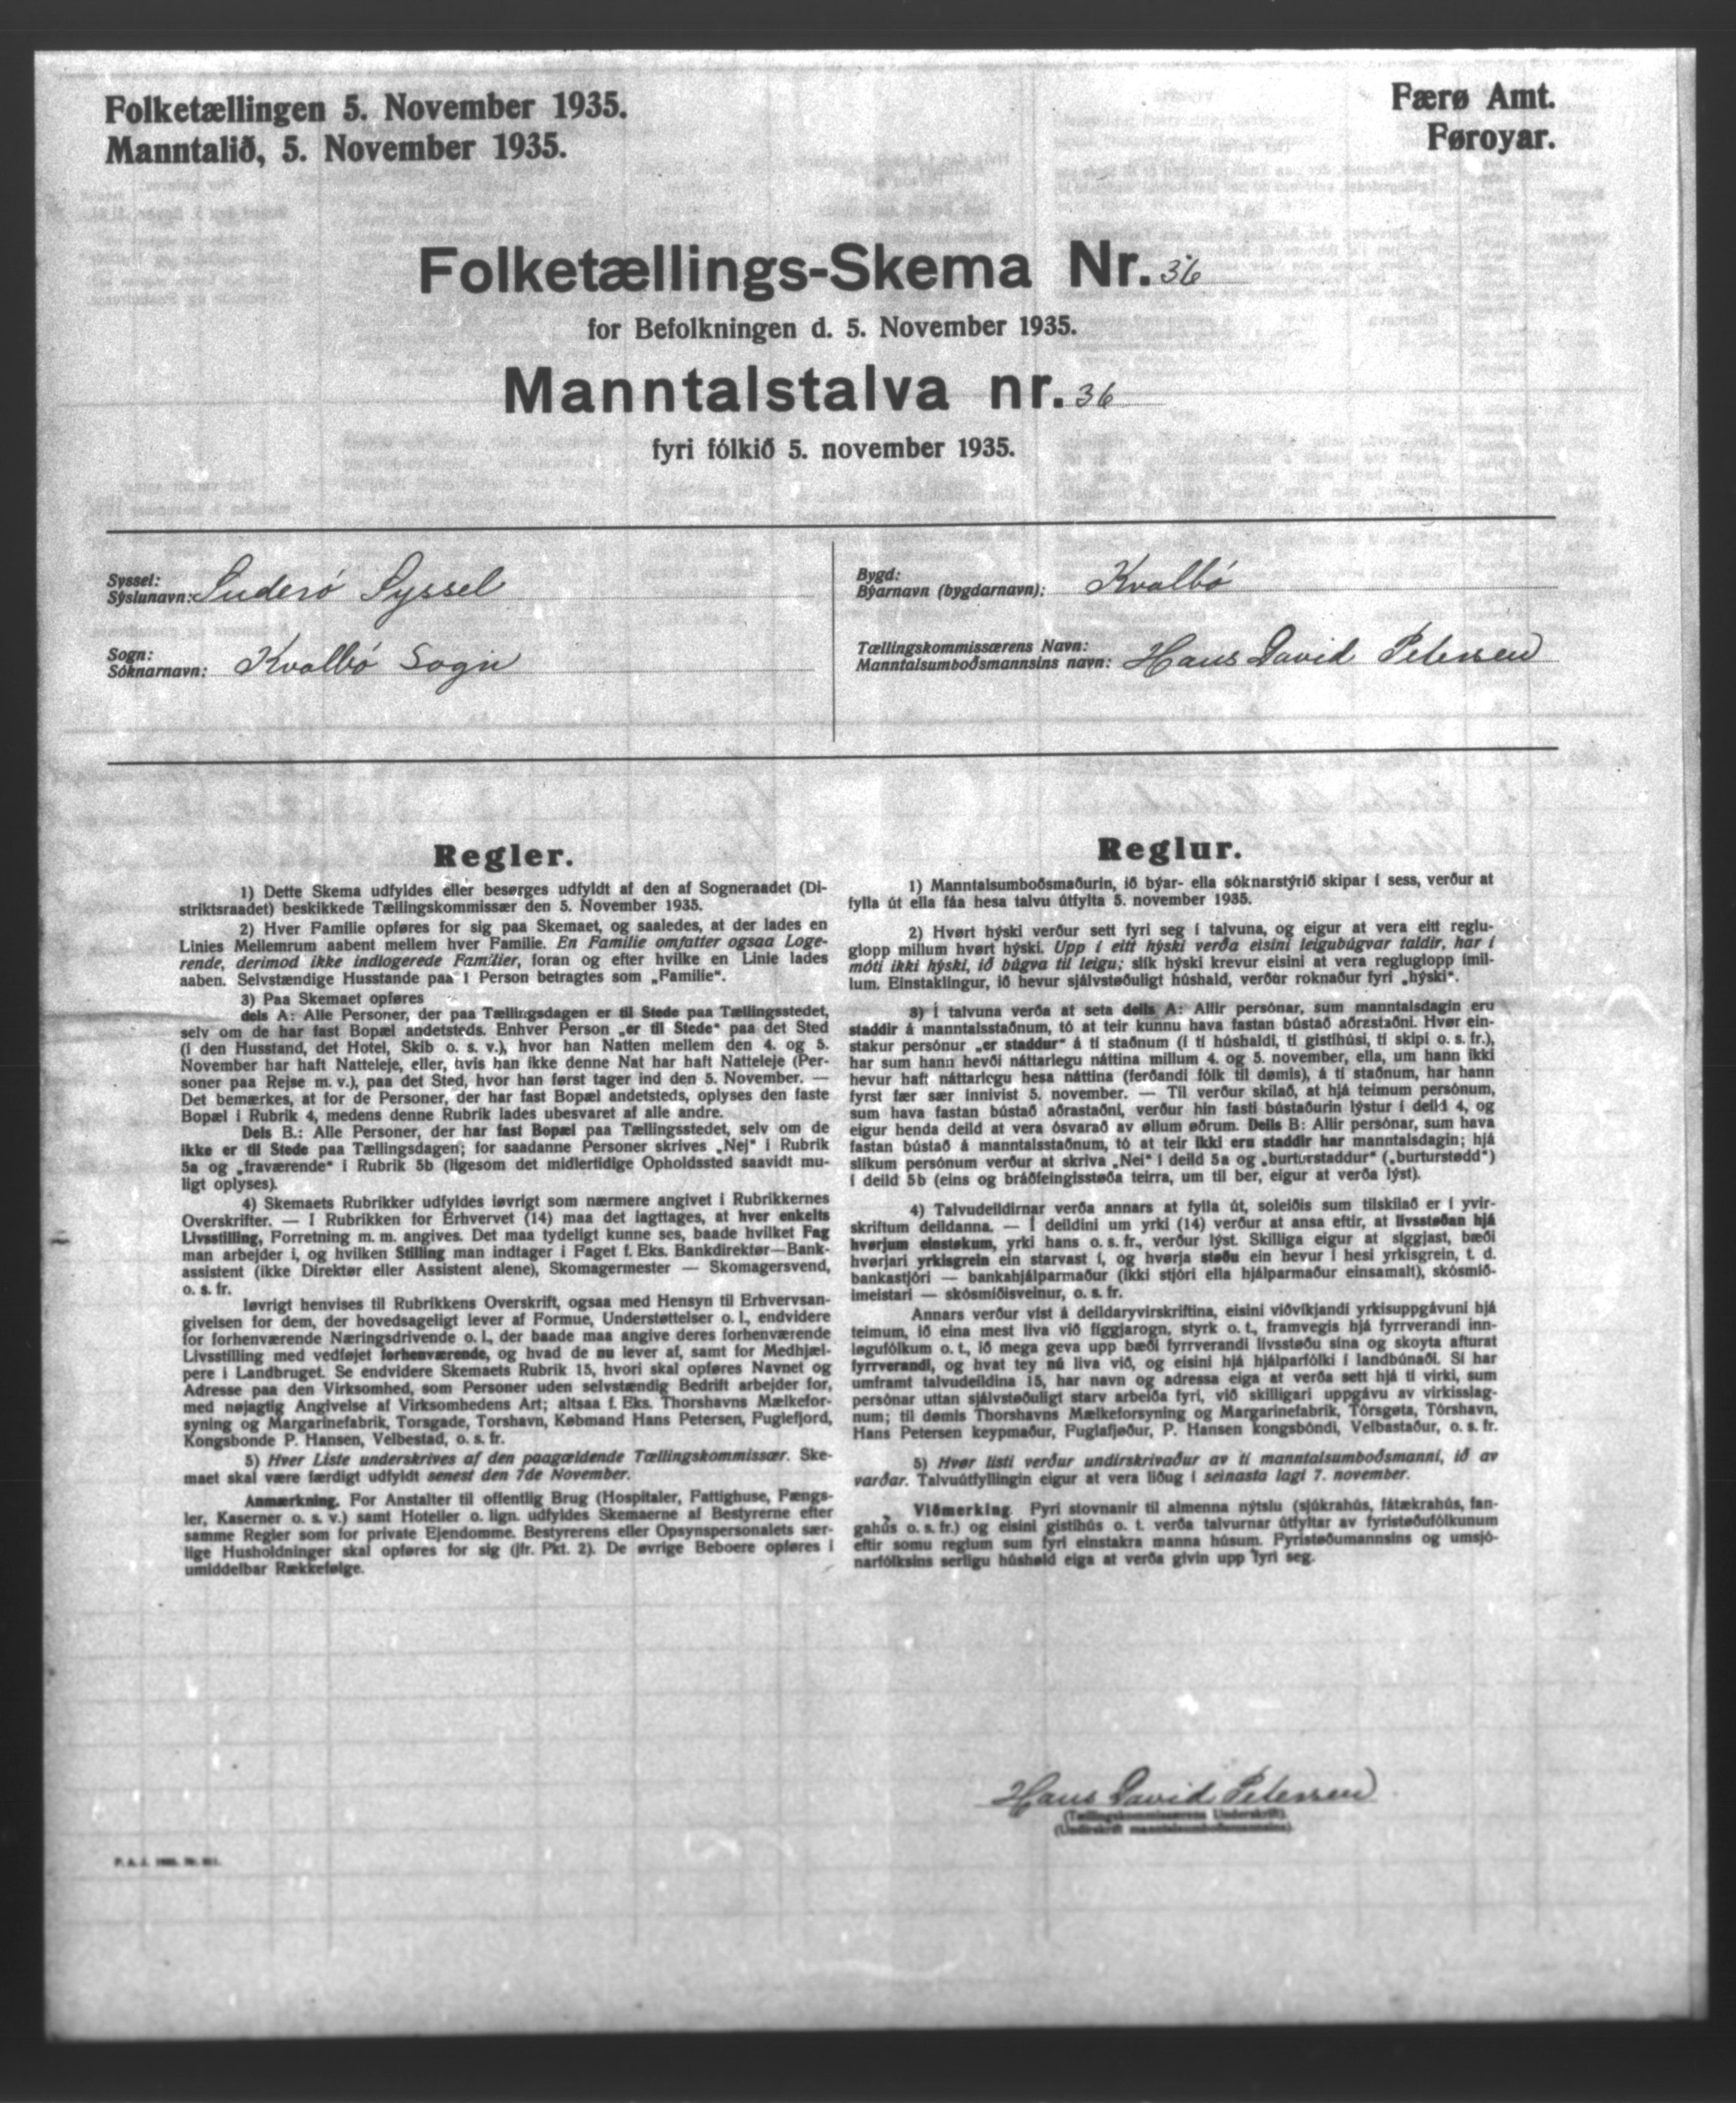 Folketællingen 5. November 1935.
Manntalið, 5. November 1935.
Færø Amt.
Føroyar.
Folketællings-Skema Nr. 36
for Befolkningen d. 5. November 1935.
Manntalstalva nr. 36
fyri fólkið 5. november 1935.
Syssel:
Sýslunavn: Suderø Syssel
Sogn:
Sóknarnavn: Kvalbø Sogn
Bygd:
Býarnavn (bygdarnavn): Kvalbø
Tællingskommissærens Navn:
Manntalsumboðsmannsins navn: Hans David Petersen
Regler.
1) Dette Skema udfyldes eller besørges udfyldt af den af Sogneraadet (Di-
striktsraadet) beskikkede Tællingskommissær den 5. November 1935.
2) Hver Familie opføres for sig paa Skemaet, og saaledes, at der lades en
Linies Mellemrum aabent mellem hver Familie. En Familie omfatter ogsaa Loge-
rende, derimod ikke indlogerede Familier, foran og efter hvilke en Linie lades
aaben. Selvstændige Husstande paa 1 Person betragtes som „Familie“.
3) Paa Skemaet opføres
dels A: Alle Personer, der paa Tællingsdagen er til Stede paa Tællingsstedet,
selv om de har fast Bopæl andetsteds. Enhver Person „er til Stede“ paa det Sted
(i den Husstand, det Hotel, Skib o. s. v.), hvor han Natten mellem den 4. og 5.
November har haft Natteleje, eller, hvis han ikke denne Nat har haft Natteleje (Per-
soner paa Rejse m. v.), paa det Sted, hvor han først tager ind den 5. November. —
Det bemærkes, at for de Personer, der har fast Bopæl andetsteds, oplyses den faste
Bopæl i Rubrik 4, medens denne Rubrik lades ubesvaret af alle andre.
Dels B.: Alle Personer, der har fast Bopæl paa Tællingsstedet, selv om de
ikke er til Stede paa Tællingsdagen; for saadanne Personer skrives „Nej“ i Rubrik
5a og „fraværende“ i Rubrik 5b (ligesom det midlertidige Opholdssted saavidt mu-
ligt oplyses).
4) Skemaets Rubrikker udfyldes iøvrigt som nærmere angivet i Rubrikkernes
Overskrifter. — I Rubrikken for Erhvervet (14) maa det iagttages, at hver enkelts
Livsstilling, Forretning m. m. angives. Det maa tydeligt kunne ses, baade hvilket Fag
man arbejder i, og hvilken Stilling man indtager i Faget f. Eks. Bankdirektør—Bank-
assistent (ikke Direktør eller Assistent alene), Skomagermester — Skomagersvend,
o. s. fr.
Iøvrigt henvises til Rubrikkens Overskrift, ogsaa med Hensyn til Erhvervsan-
givelsen for dem, der hovedsageligt lever af Formue, Understøttelser o. l., endvidere
for forhenværende Næringsdrivende o. l., der baade maa angive deres forhenværende
Livsstilling med vedføjet forhenværende, og hvad de nu lever af, samt for Medhjæl-
pere i Landbruget. Se endvidere Skemaets Rubrik 15, hvori skal opføres Navnet og
Adresse paa den Virksomhed, som Personer uden selvstændig Bedrift arbejder for,
med nøjagtig Angivelse af Virksomhedens Art; altsaa f. Eks. Thorshavns Mælkefor-
syning og Margarinefabrik, Torsgade, Torshavn, Købmand Hans Petersen, Fuglefjord,
Kongsbonde P. Hansen, Velbestad, o. s. fr.
5) Hver Liste underskrives af den paagældende Tællingskommissær. Ske-
maet skal være færdigt udfyldt senest den 7de November.
Anmærkning. For Anstalter til offentlig Brug (Hospitaler, Fattighuse, Fængs-
ler, Kaserner o. s. v.) samt Hoteller o. lign. udfyldes Skemaerne af Bestyrerne efter
samme Regler som for private Ejendomme. Bestyrerens eller Opsynspersonalets sær-
lige Husholdninger skal opføres for sig (jfr. Pkt. 2). De øvrige Beboere opføres i
umiddelbar Rækkefølge.
Reglur.
1) Manntalsumboðsmaðurin, ið býar- ella sóknarstýrið skipar í sess, verður at
fylla út ella fáa hesa talvu útfylta 5. november 1935.
2) Hvørt hýski verður sett fyri seg í talvuna, og eigur at vera eitt reglu-
glopp millum hvørt hýski. Upp í eitt hýski verða eisini leigubúgvar taldir, har í
móti ikki hýski, ið búgva til leigu; slík hýski krevur eisini at vera regluglopp ímil-
lum. Einstaklingur, ið hevur sjálvstøðuligt húshald, verður roknaður fyri „hýski“.
3) Í talvuna verða at seta deils A: Allir persónar, sum manntalsdagin eru
staddir á manntalsstaðnum, tó at teir kunnu hava fastan bústað aðrastaðni. Hvør ein-
stakur persónur „er staddur“ á tí staðnum (í tí húshaldi, tí gistihúsi, tí skipi o. s. fr.),
har sum hann hevði náttarlegu náttina millum 4. og 5. november, ella, um hann ikki
hevur haft náttarlegu hesa náttina (ferðandi fólk til dømis), á tí staðnum, har hann
fyrst fær sær innivist 5. november. — Til verður skilað, at hjá teimum persónum,
sum hava fastan bústað aðrastaðni, verður hin fasti bústaðurin lýstur í deild 4, og
eigur henda deild at vera ósvarað av øllum øðrum. Deils B: Allir persónar, sum hava
fastan bústað á manntalsstaðnum, tó at teir ikki eru staddir har manntalsdagin; hjá
slíkum persónum verður at skriva „Nei“ í deild 5a og „burturstaddur“ („burturstødd“)
í deild 5b (eins og bráðfeingisstøða teirra, um til ber, eigur at verða lýst).
4) Talvudeildirnar verða annars at fylla út, soleiðis sum tilskilað er í yvir-
skriftum deildanna. — Í deildini um yrki (14) verður at ansa eftir, at livsstøðan hjá
hvørjum einstøkum, yrki hans o. s. fr., verður lýst. Skilliga eigur at siggjast, bæði
hvørjari yrkisgrein ein starvast í, og hvørja støðu ein hevur í hesi yrkisgrein, t. d.
bankastjóri — bankahjálparmaður (ikki stjóri ella hjálparmaður einsamalt), skósmið-
imeistari — skósmiðisveinur, o. s. fr.
Annars verður víst á deildaryvirskriftina, eisini viðvíkjandi yrkisuppgávuni hjá
teimum, ið eina mest liva við figgjarogn, styrk o. t., framvegis hjá fyrrverandi inn-
løgufólkum o. t., ið mega geva upp bæði fyrrverandi livsstøðu sína og skoyta afturat
fyrrverandi, og hvat tey nú liva við, og eisini hjá hjálparfólki í landbúnaði. Sí har
umframt talvudeildina 15, har navn og adressa eiga at verða sett hjá tí virki, sum
persónar uttan sjálvstøðuligt starv arbeiða fyri, við skilligari uppgávu av virkisslag-
num; til dømis Thorshavns Mælkeforsyning og Margarinefabrik, Tórsgøta, Tórshavn,
Hans Petersen keypmaður, Fuglafjøður, P. Hansen kongsbóndi, Velbastaður, o. s. fr.
5) Hvør listi verður undirskrivaður av tí manntalsumboðsmanni, ið av
varðar. Talvuútfyllingin eigur at vera liðug í seinasta lagi 7. november.
Viðmerking. Fyri stovnanir til almenna nýtslu (sjúkrahús, fátækrahús, fan-
gahús o. s. fr.) og eisini gistihús o. t. verða talvurnar útfyltar av fyristøðufólkunum
eftir somu reglum sum fyri einstakra manna húsum. Fyristøðumannsins og umsjó-
narfólksins serligu húshald eiga at verða givin upp fyri seg.
Hans David Petersen
(Tællingskommissærens Underskrift).
(Undirskrift manntalsumboðsmannsins).